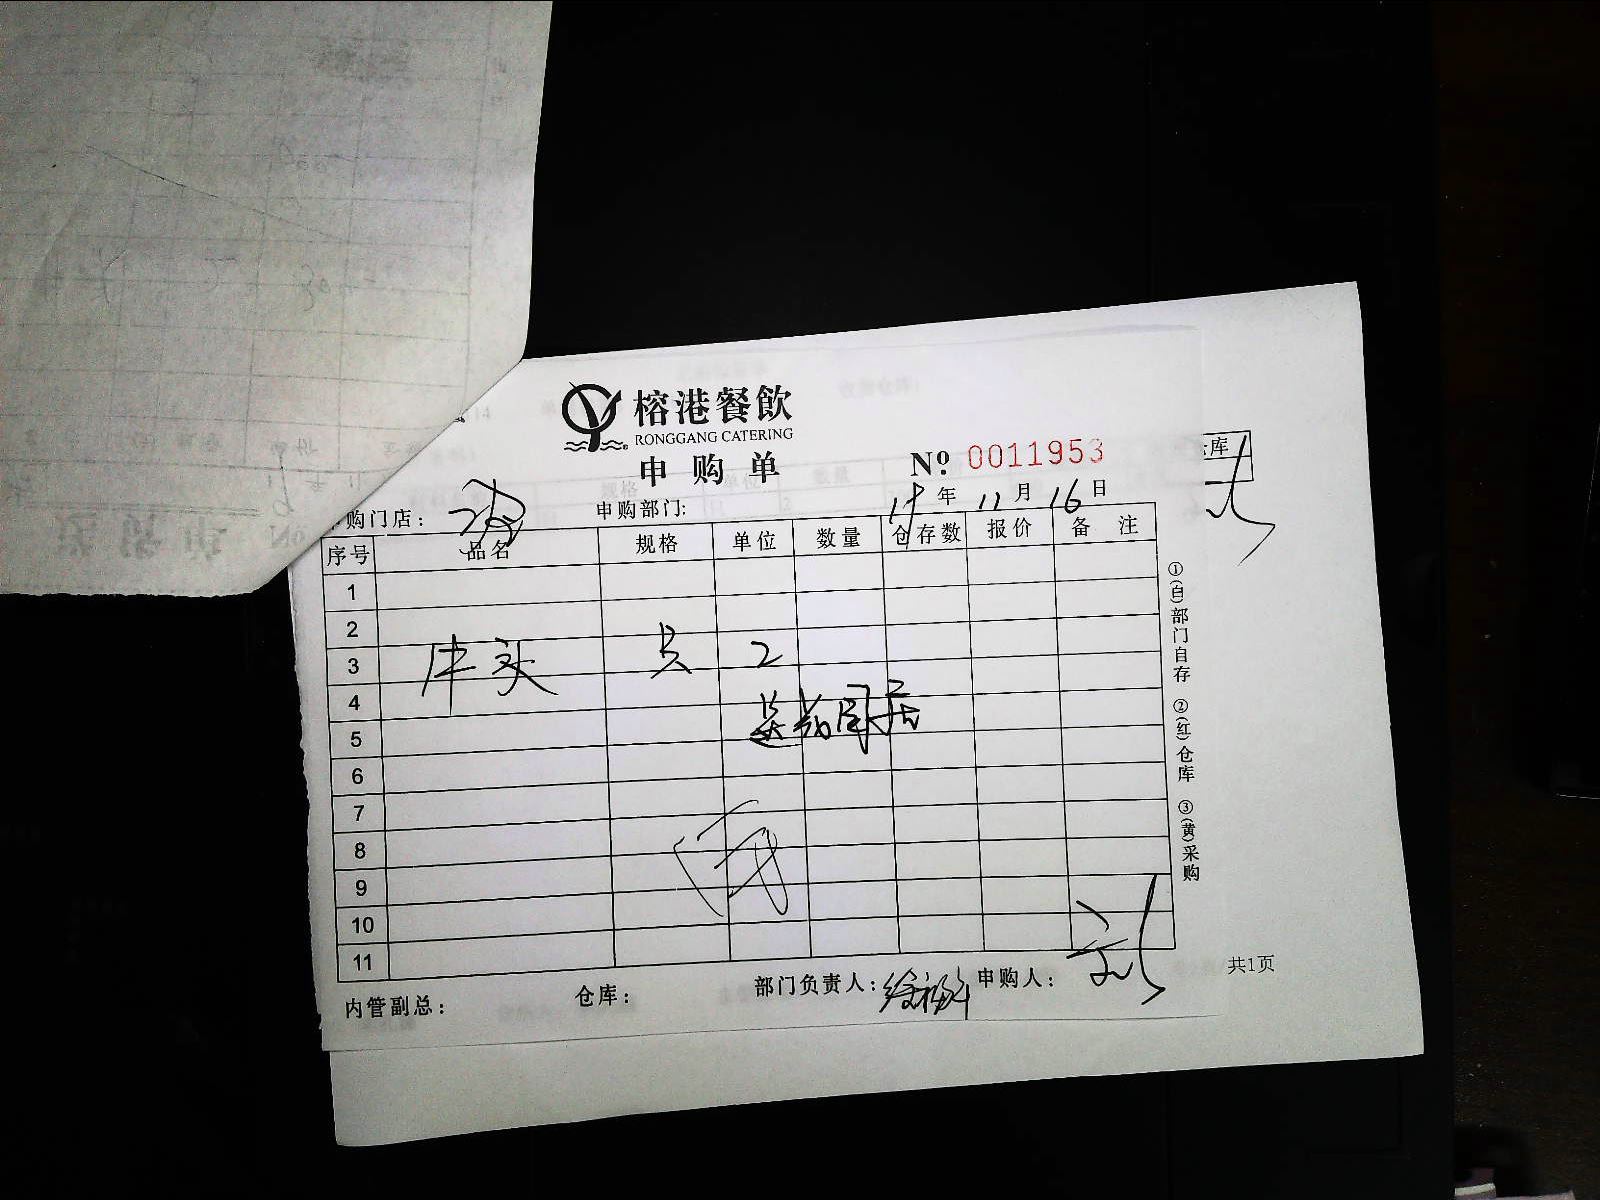 榕港餐飲
RONGGANG CATERING
申购单
№ 0011953
库
购门店： 申购部门: 19年 11月 16日
序号 品名 规格 单位 数量 仓存数 报价 备注
1
2
3 牛头 只 2
4
5
6
7
8
9
10
11
①(白)部门自存 ②(红)仓库 ③(黄)采购
内管副总： 仓库： 部门负责人： 申购人：
共1页